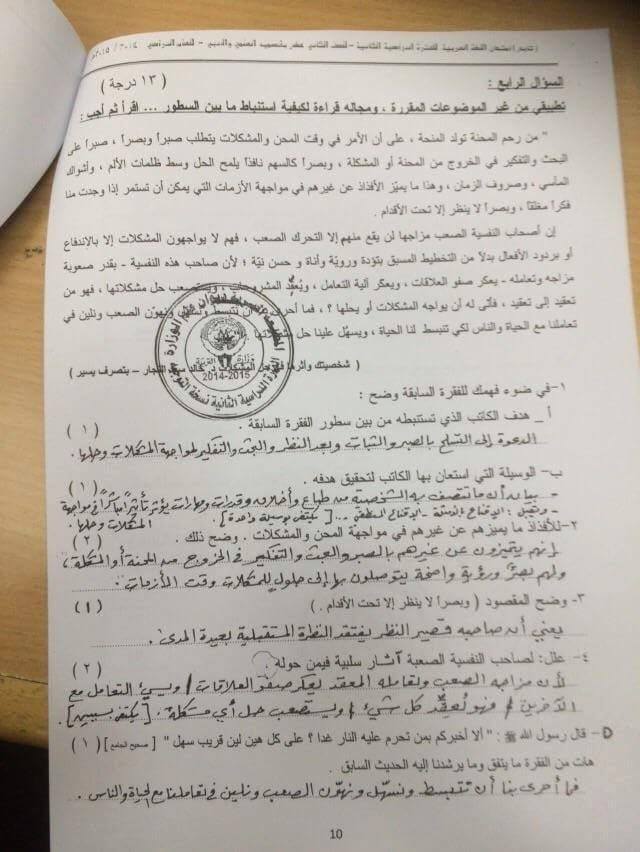 ( تابع ) امتحان اللغة العربية للفترة الدراسية الثانية – للصف الثاني عشر بقسميه العلمي والأدبي – للعام الدراسي ٢٠١٤ / ٢٠١٥م
السؤال الرابع : ( ١٣ درجة )
تطبيقي من غير الموضوعات المقررة ، ومجاله قراءة لكيفية استنباط ما بين السطور ... اقرأ ثم أجب :
" من رحم المحنة تولد المنحة ، على أن الأمر في وقت المحن والمشكلات يتطلب صبراً وبصراً ، صبراً على
البحث والتفكير في الخروج من المحنة أو المشكلة ، وبصراً كالسهم نافذاً يلمح الحل وسط ظلمات الألم ، وأشواك
المآسي ، وصروف الزمان ، وهذا ما يميّز الأفذاذ عن غيرهم في مواجهة الأزمات التي يمكن أن تستمر إذا وجدت منا
فكراً مغلقاً ، وبصراً لا ينظر إلا تحت الأقدام .
إن أصحاب النفسية الصعب مزاجها لن يقع منهم إلا التحرك الصعب ، فهم لا يواجهون المشكلات إلا بالاندفاع
أو بردود الأفعال بدلاً من التخطيط السبق بتؤدة ورويّة وأناة و حسن نيّة ؛ لأن صاحب هذه النفسية - بقدر صعوبة
مزاجه وتعامله - يعكر صفو العلاقات ، ويعكر آلية التعامل ، ويُعقّد المشروعات ، ويستصعب حل مشكلاتها ، فهو من
تعقيد إلى تعقيد ، فأنّى له أن يواجه المشكلات أو يحلها ؟ ، فما أحرى أن نتبسط ونهوّن الصعب ونلين في
تعاملنا مع الحياة والناس لكي تنبسط لنا الحياة ، ويسهّل علينا حل
( شخصيتك وأثرها في حل المشكلات د. خالد النجار – بتصرف يسير )
وزارة التربية
2014-2015
الفترة الدراسية الثانية نسخة التوجيه
١–في ضوء فهمك للفقرة السابقة وضح :
أ _ هدف الكاتب الذي تستنبطه من بين سطور الفقرة السابقة . ( ١ )
الدعوة إلى التسلح بالصبر والثبات وبعد النظر والبحث والتفكير لمواجهة المشكلات وحلها .
ب- الوسيلة التي استعان بها الكاتب لتحقيق هدفه . ( ١ )
- بيانه أن ما تتصف به الشخصية من طباع وأخلاق وقدرات ومهارات يؤثر تأثيراً مباشراً في مواجهة
المشكلات وحلها .
[ يكتفى بوسيلة واحدة ]
٢–للأفذاذ ما يميزهم عن غيرهم في مواجهة المحن والمشكلات . وضح ذلك . ( ٢ )
إنهم يتميزون عن غيرهم بالصبر والبحث والتفكير في الخروج من المحنة أو المشكلة ،
ولهم بصر ورؤية واضحة يتوصلون بها إلى حلول للمشكلات وقت الأزمات .
٣- وضح المقصود ( وبصراً لا ينظر إلا تحت الأقدام . ) ( ١ )
يعني أن صاحبه قصير النظر يفتقد النظرة المستقبلية بعيدة المدى .
٤- علل: لصاحب النفسية الصعبة آثار سلبية فيمن حوله . ( ٢ )
لأن مزاجه الصعب وتعامله المعقد يعكر صفو العلاقات / ويسيء التعامل مع
الآخرين / فهو يُعقّد كل شيء / ويستصعب حل أي مشكلة . [ يكتفى بسببين ] .
D– قال رسول الله ﷺ : " ألا أخبركم بمن تحرم عليه النار غدا ؟ على كل هين لين قريب سهل " [صحيح الجامع] ( ١ )
هات من الفقرة ما يتفق وما يرشدنا إليه الحديث السابق .
فما أحرى بنا أن نتبسط ونسهّل ونهوّن الصعب ونلين في تعاملنا مع الحياة والناس .
10